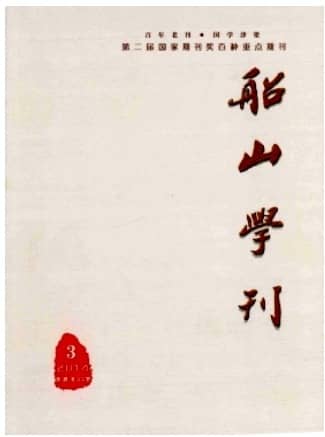 百年老刊 • 国学津梁
第二届国家期刊奖百种重点期刊
船山學刊
3
2014